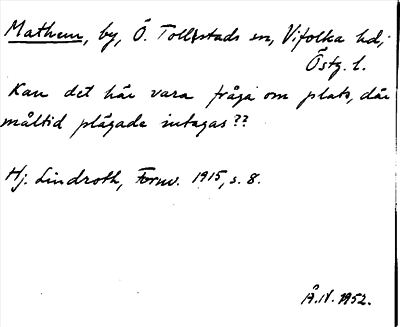 Mathem, by, Ö. Tollstads sn, Vifolka hd,
Östg. l.
Kan det här vara fråga om plats, där
måltid plägade intagas??
Hj. Lindroth, Fornv. 1915, s. 8.
Å. N. 1952.